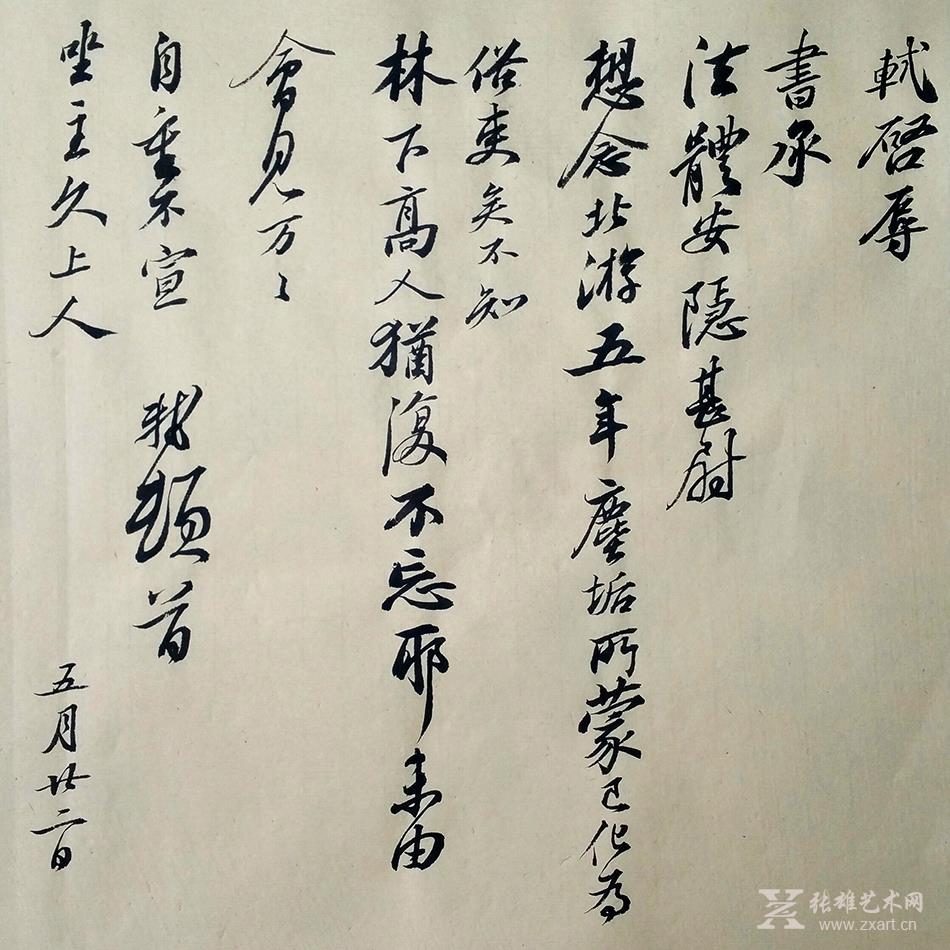 軾啓辱
書承
法體安隱甚尉
想念北游五年塵垢所蒙已化為
俗吏矣不知
林下高人猶復不忘耶未由
會見万〻
自重不宣 軾頓首
坐主久上人 五月廿二日
张雄艺术网
www.zxart.cn